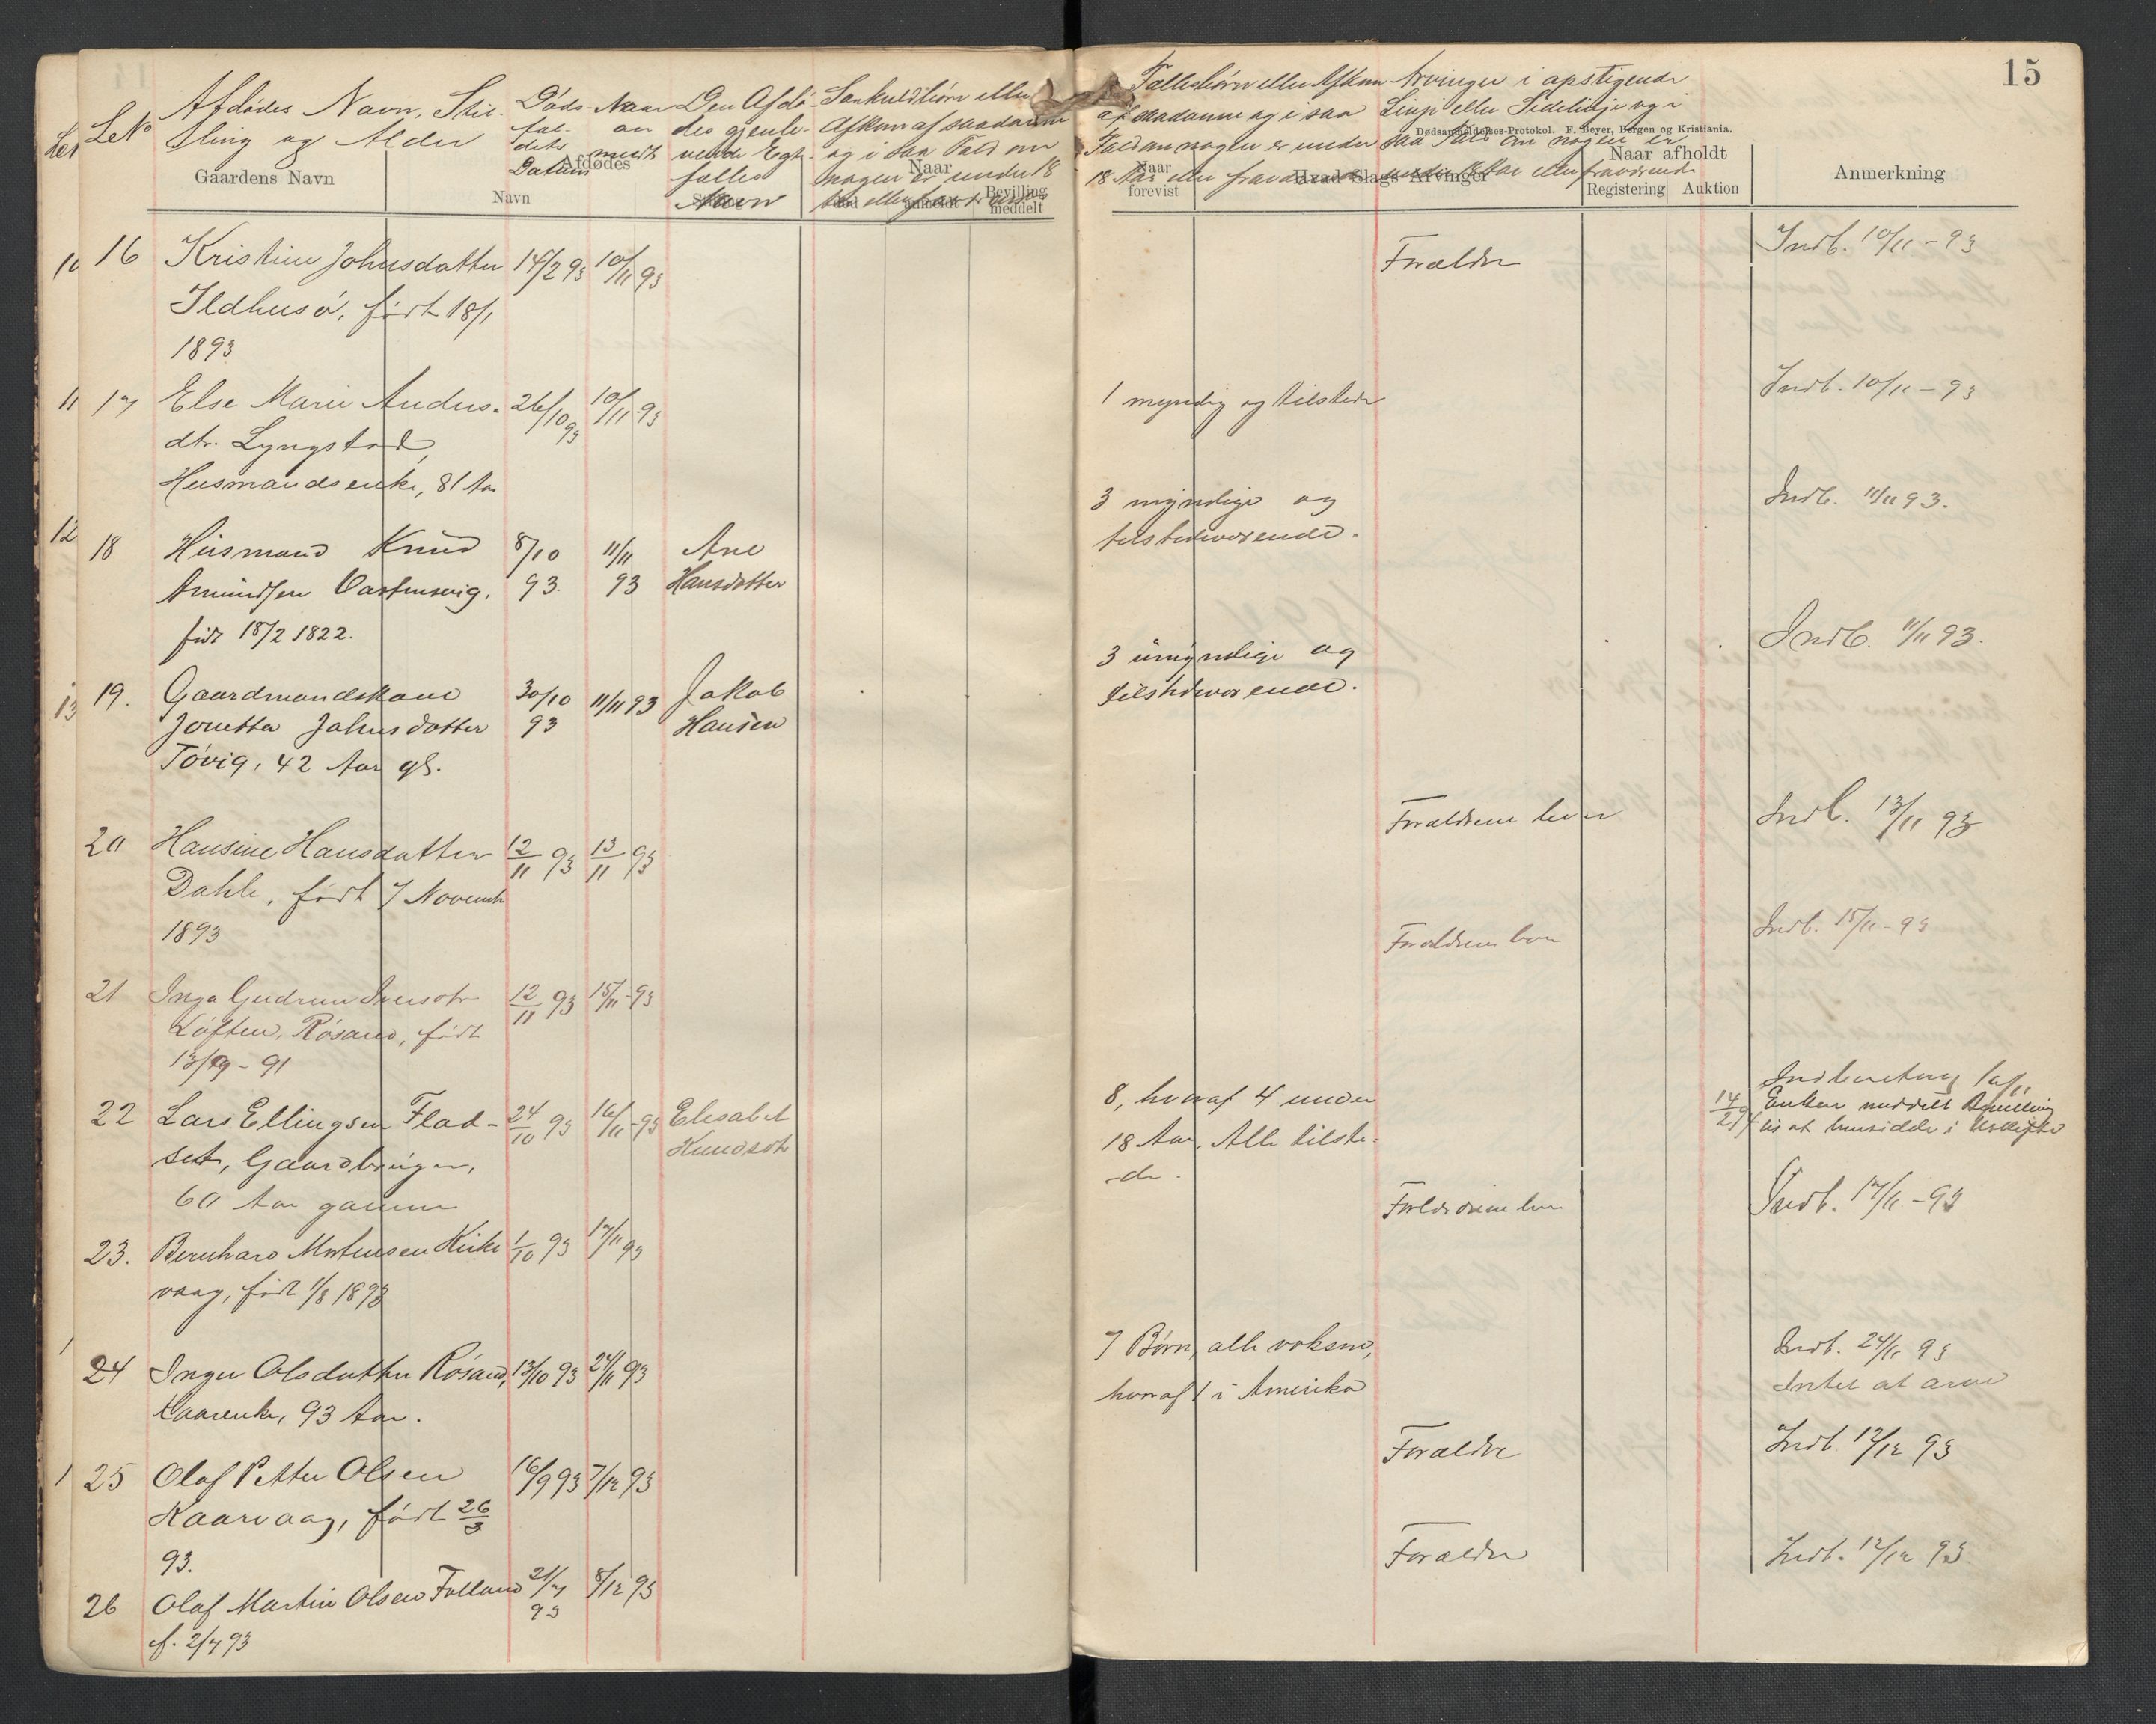 15
Le No
Afdødes Navn, Stil-
ling og Alder
Døds-
fal-
dets
Datum
Naar
an
meldt
Den Afdø-
des gjenle-
vende Egte-
fælles
Navn
Særkuldbørn eller
Afkom af saadanne
og i saa Fald om
nogen er under 18
Aar eller fraværende
Fællesbørn eller Afkom
af saadanne og i saa
Fald om nogen er under
18 Aar eller fraværende
Arvinger i opstigende
Linje eller Sidelinje og i
saa Fald om nogen er
under 18 Aar eller fraværende
Dødsanmeldelses-Protokol. F. Beyer, Bergen og Kristiania.
Gaardens Navn
Afdødes
Navn
Naar
død
anmeldt
Bevilling
meddelt
Naar
forevist
Hvad Slags Arvinger
Naar afholdt
Registering
Auktion
Anmerkning
16 Kristine Johnsdatter 14/2 93 10/11 93 Forældre Indb. 10/11 - 93
Ildhusø, født 18/1
1893
17 Else Marie Anders- 26/10 93 10/11 93 1 myndig og tilstede Indb. 10/11 - 93
dtr. Lyngstad,
Husmandsenke, 81 Aar
18 Husmand Knud 8/10 11/11 Ane 3 myndige og Indb. 11/11 93.
Amundsen Vastensvig, 93. 93 Hansdatter tilstedeværende.
født 18/2 1822.
19. Gaardmandskone 30/10 11/11 93 Jakob 3 umyndige og Indb. 11/11 93.
Jonetta Johnsdatter 93 Hansen tilstedeværende.
Tøvig, 42 Aar gl.
20 Hansine Hansdatter 12/11 93 13/11 93 Forældrene lever Indb. 13/11 93
Dahle, født 7 Novemb
1893
21 Inga Gudrun Iversdtr 12/11 93 15/11 - 93 Forældrene lever Indb. 15/11 - 93
Løften, Røsand, født
13/9 - 91
22 Lars Ellingsen Flad- 24/10 93 16/11 - 93 Elisabet 8, hvoraf 4 under Indberetning 16/11
set, Gaardbruger, Knudsdtr 18 Aar. Alle tilste- 14/2 94 Enken meddelt Bevilling
60 Aar gammel -de. til at hensidde i Uskifte
23. Bernhard Mortensen Kirke 1/10 93 17/11 93 Forældrene lever Indb. 17/11 - 93
vaag, født 1/8 1893
24 Inger Olsdatter Røsand, 13/10 93 24/11 93 7 Børn, alle voksne, Indb. 24/11 93
Kaarenke, 93 Aar. hvoraf 1 i Amerika Intet at arve
25 Olaf Petter Olsen 16/9 93 7/12 93 Forældre Indb. 12/12 93
Kaarvaag, født 26/3
93.
26 Olaf Martin Olsen Folland 21/7 93 8/12 93 Forældre Indb. 12/12 93
f. 2/7 93